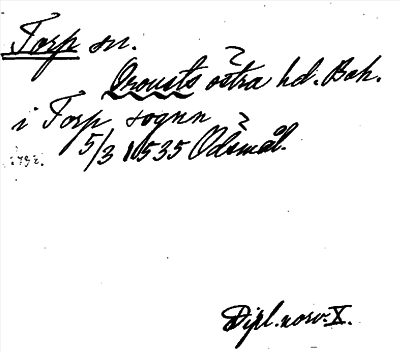 Torp sn.
Orousts östra hd. Boh.
i Torp sognn
5/3 1535 Ödsmål.
Dipl. norv. X.